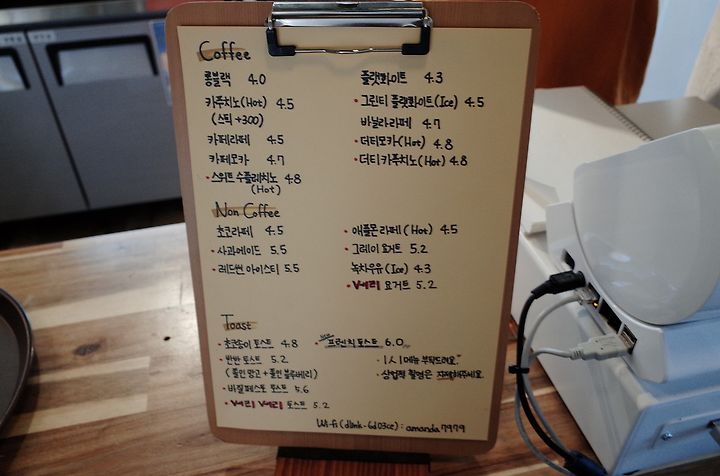 Coffee
롱블랙 4.0
카푸치노(Hot) 4.5
(스틱+300)
카페라떼 4.5
카페모카 4.7
•스위트 수플레치노 4.8
(Hot)
플랫화이트 4.3
•그린티 플랫화이트(Ice) 4.5
바닐라라떼 4.7
•더티모카(Hot) 4.8
•더티카푸치노(Hot) 4.8
Non Coffee
초코라떼 4.5
•사과에이드 5.5
•레드썬 아이스티 5.5
•애플몬라떼(Hot) 4.5
•그레이 요거트 5.2
녹차우유(Ice) 4.3
•베리 요거트 5.2
Toast
•초코송이 토스트 4.8
•반반 토스트 5.2
(톨인 망고+톨인 블루베리)
•바질페스토 토스트 5.6
•베리 베리 토스트 5.2
•프렌치토스트 6.0
•1人 1메뉴 부탁드려요."
•상업적 촬영은 자제해주세요.
Wi-fi(dlink-6d03ce): amanda7979